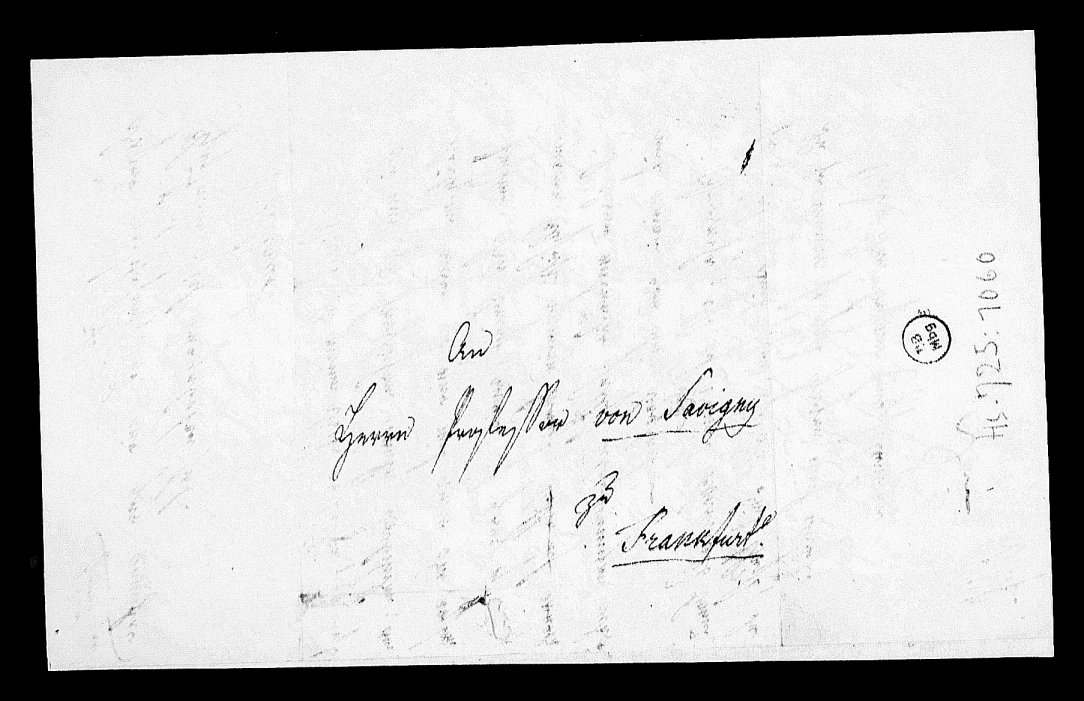 An
Herrn Professor von Savigny
zu
Frankfurt.
UB
Mbg
Hs. 725:1060